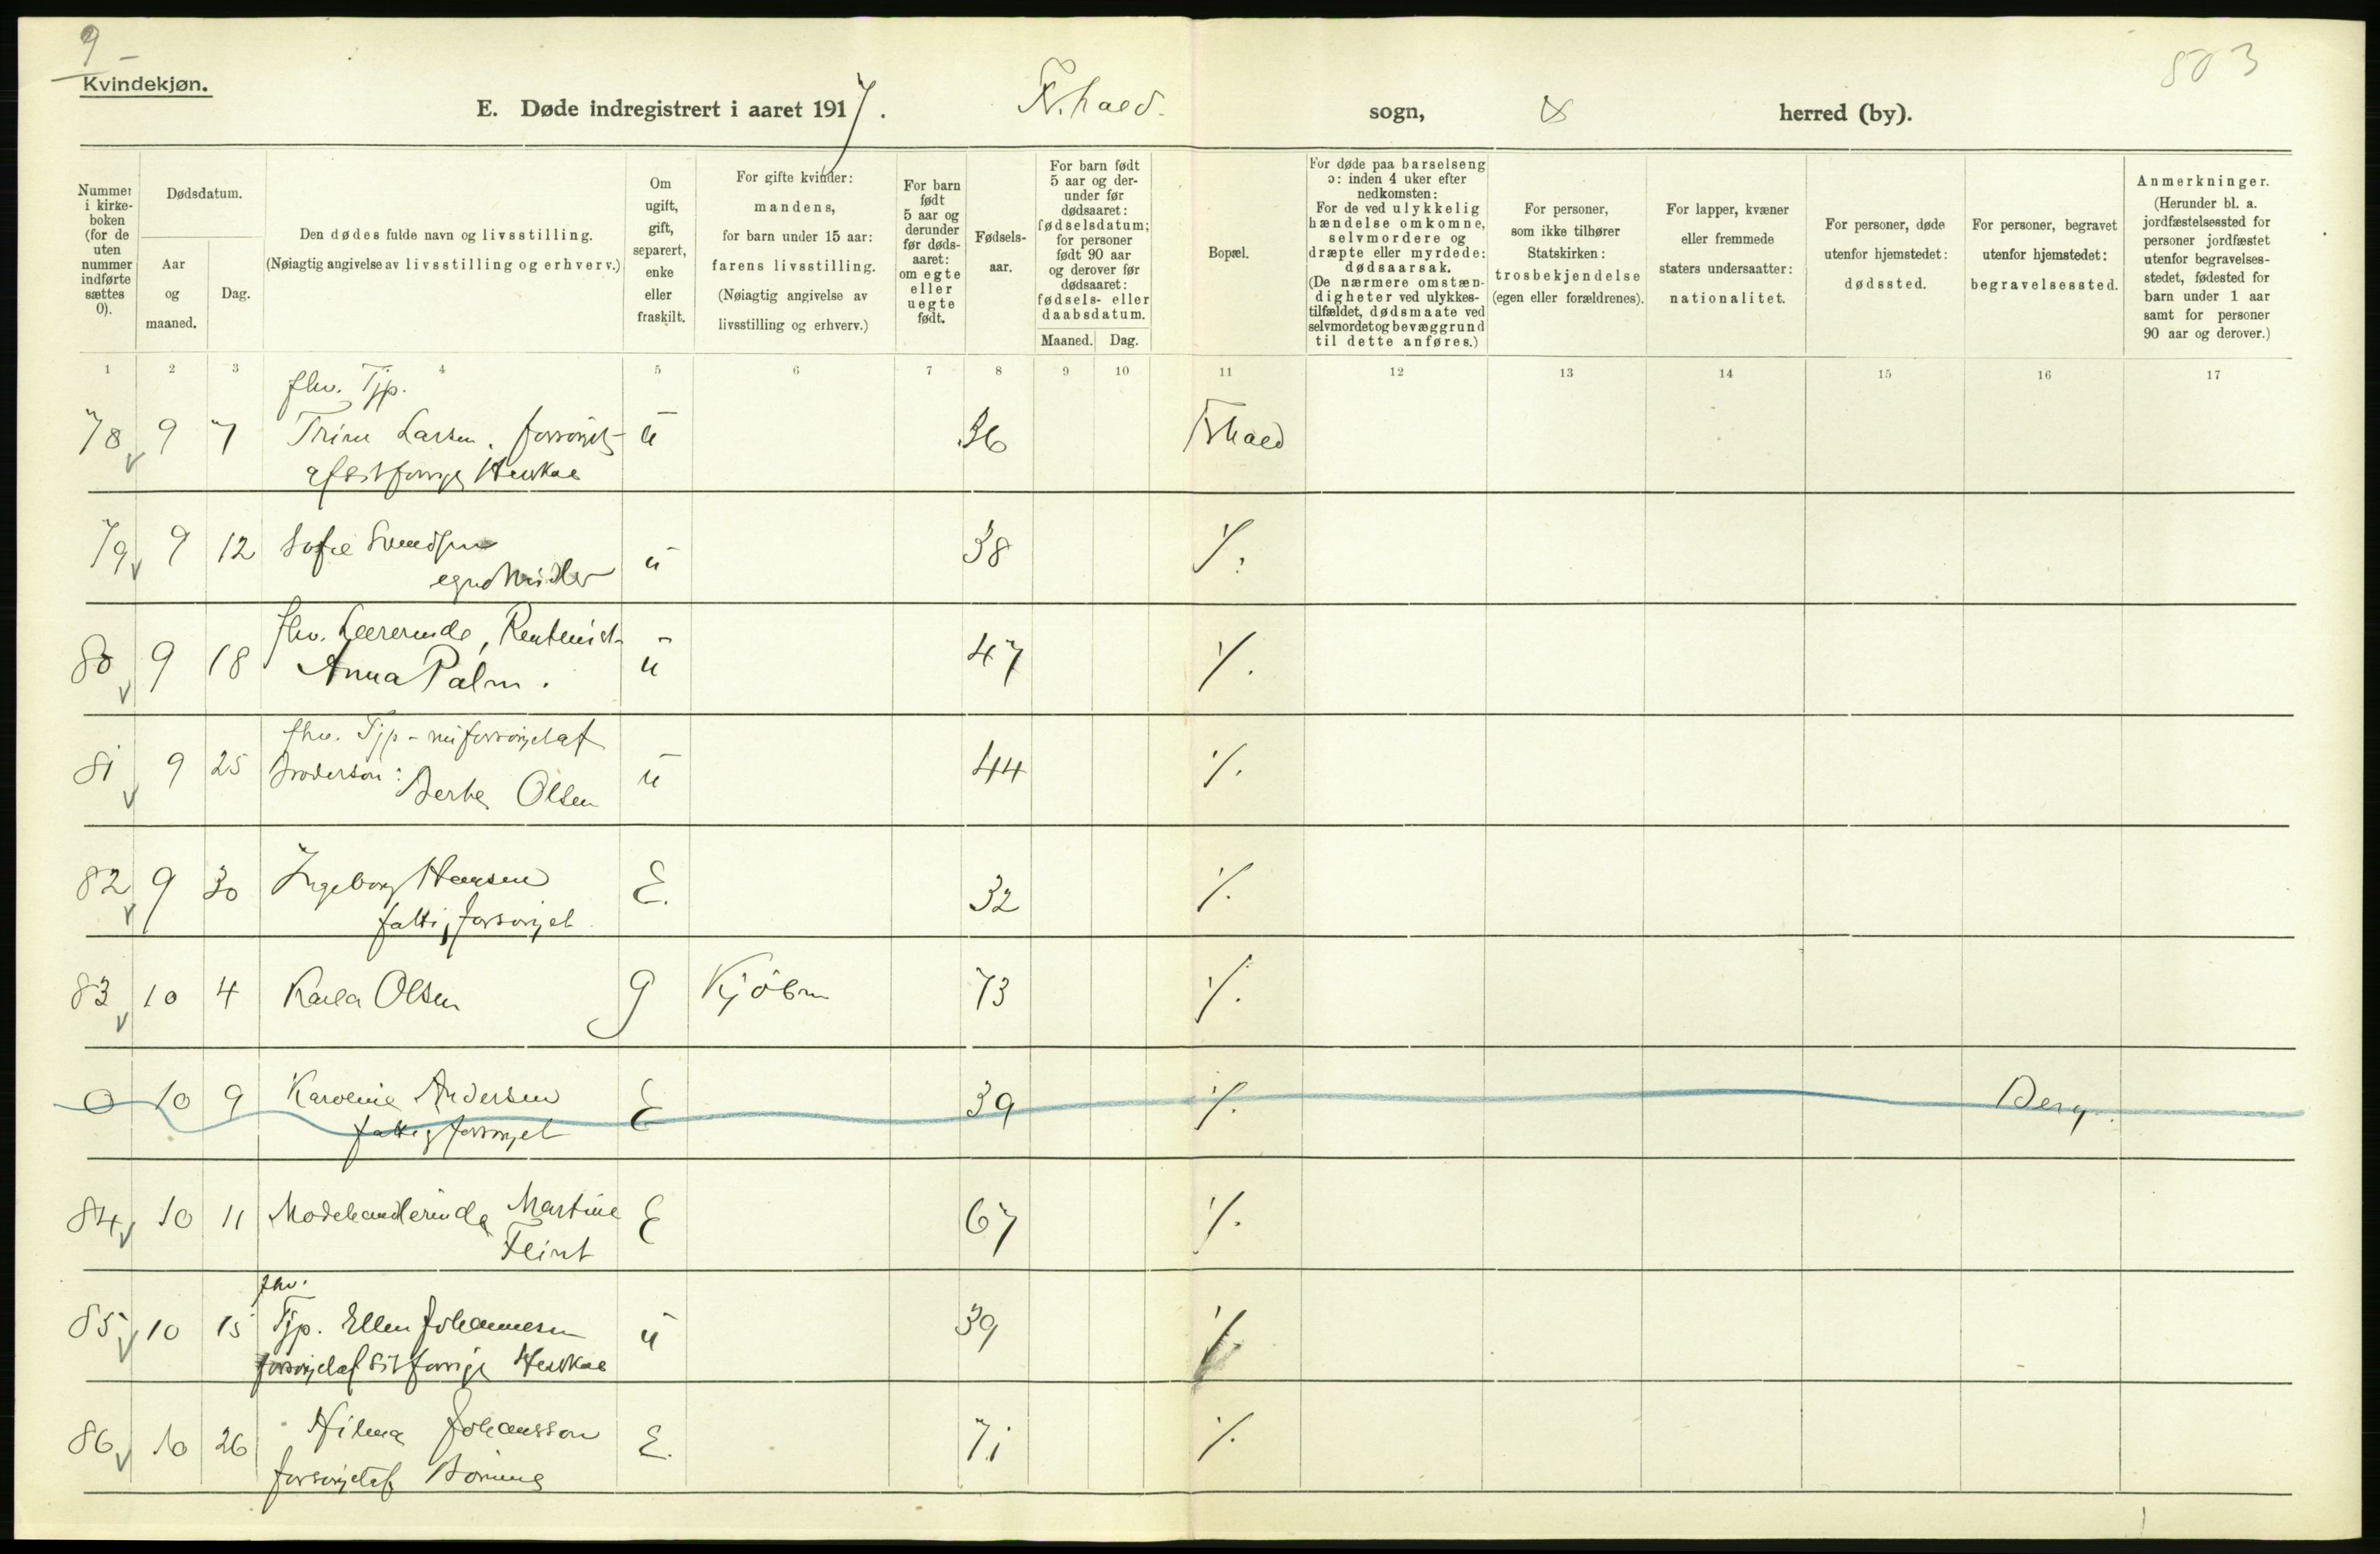 9
Kvindekjøn.
503
E. Døde indregistrert i aaret 1917.
Fr.hald.
sogn,
herred (by).
Nummer i kirkeboken (for de uten nummer indførte sættes 0).
Dødsdatum.
Aar og maaned.
Dag.
Den dødes fulde navn og livsstilling.
(Nøiagtig angivelse av livsstilling og erhverv.)
Om ugift, gift, separert, enke eller fraskilt.
For gifte kvinder: mandens, for barn under 15 aar: farens livsstilling. (Nøiagtig angivelse av livsstilling og erhverv.)
For barn født 5 aar og derunder før dødsaaret: om egte eller uegte født.
Fødselsaar.
For barn født 5 aar og derunder før dødsaaret: fødselsdatum; for personer født 90 aar og derover før dødsaaret: fødsels- eller daabsdatum.
Maaned. Dag.
Bopæl.
For døde paa barselseng ɔ: inden 4 uker efter nedkomsten: For de ved ulykkelig hændelse omkomne, selvmordere og dræpte eller myrdede: dødsaarsak. (De nærmere omstændigheter ved ulykkestilfældet, dødsmaate ved selvmordet og bevæggrund til dette anføres.)
For personer, som ikke tilhører Statskirken: trosbekjendelse (egen eller forældrenes).
For lapper, kvæner eller fremmede staters undersaatter: nationalitet.
For personer, døde utenfor hjemstedet: dødssted.
For personer, begravet utenfor hjemstedet: begravelsessted.
Anmerkninger. (Herunder bl. a. jordfæstelsessted for personer jordfæstet utenfor begravelsesstedet, fødested for barn under 1 aar samt for personer 90 aar og derover.)
1 2 3 4 5 6 7 8 9 10 11 12 13 14 15 16 17
fhv. Tjp.
78 9 7 Trine Larsen. forsørget u 36 Fr.hald
af sit forrige Herskab
79 9 12 Sofie Svendsen u 38 ٪
egne Midler
fhv. Lærerinde, Rentenist
80 9 18 Anna Palm. u 47 ٪
fhv. Tjp - nu forsørget af
81 9 25 Brodersøn: Berthe Olsen u 44 ٪
82 9 30 Ingeborg Hansen E. 32 ٪
fattigforsørget.
83 10 4 Karla Olsen g Kjøbm 73 ٪
0 10 9 Karoline Andersen E 39 ٪ Berg.
fattigforsørget
84 10 11 Modehandlerinde Martine E 67 ٪
Flint
fhv.
85 10 15 Tjp. Ellen Johannesen u 39 ٪
forsørget af sit forrige Herskab
86 10 26 Hilma Johansson E. 71 ٪
forsørget af Børnene